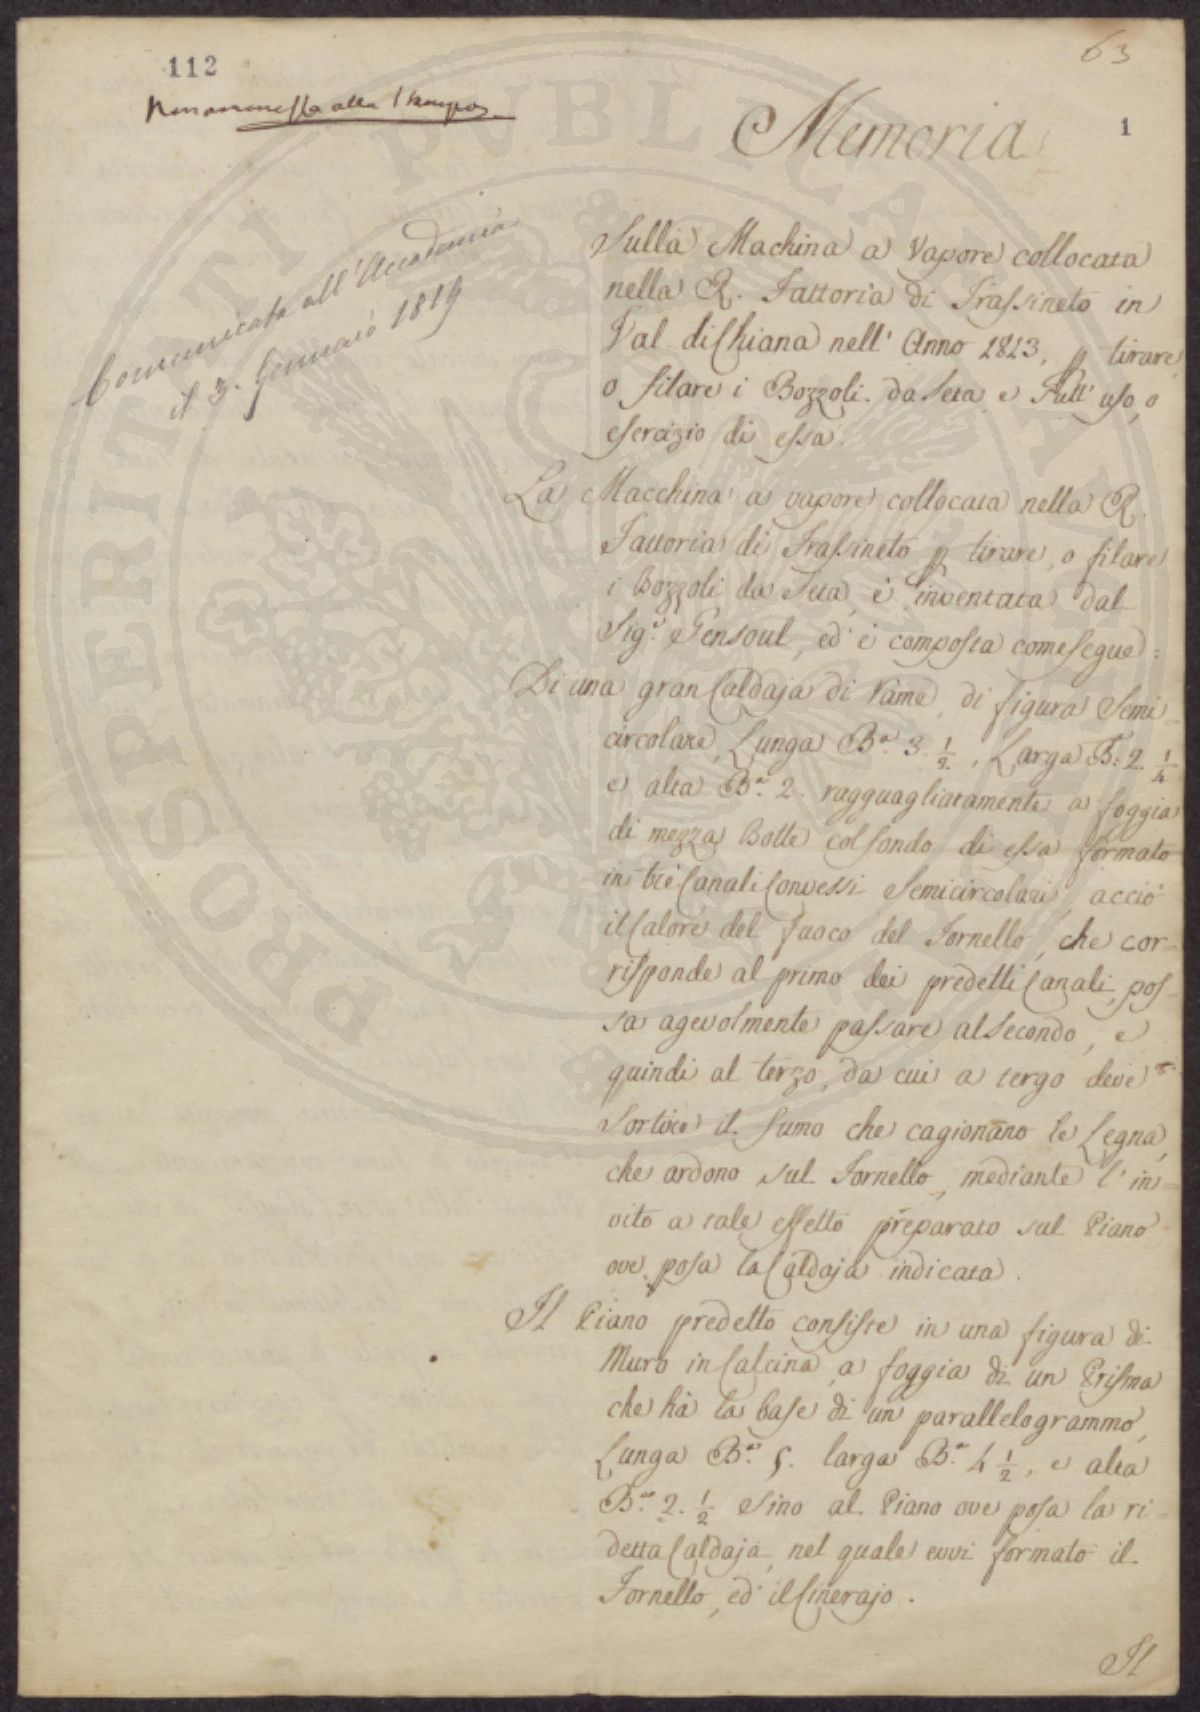 112
63
Non ammessa alla Stampa
Memoria
1
Comunicata all'Accademia
il 3. Gennaio 1819
Sulla Machina a Vapore collocata
nella R. Fattoria di Frassineto in
Val di Chiana nell' Anno 1813, p tirare,
o filare i Bozzoli da Seta, e sull' uso, o
esercizio di essa.
La Macchina a vapore collocata nella R.
Fattoria di Frassineto p tirare, o filare
i Bozzoli da Seta, è inventata dal
Sig.r Gensoul, ed è composta come segue:
Di una gran Caldaja di rame, di figura Semi-
circolare, Lunga B.a 3 1/2, Larga B. 2 1/4
e alta B.a 2. ragguagliatamente a foggia
di mezza Botte col fondo di essa formato
in tre Canali Convessi Semicircolari, acciò
il Calore del fuoco del Fornello, che cor-
risponde al primo dei predetti Canali, pos-
sa agevolmente passare al Secondo, e
quindi al terzo, da cui a tergo deve
Sortire il fumo che cagionano le Legna,
che ardono sul Fornello, mediante l' in-
vito a tale effetto preparato sul Piano
ove posa la Caldaja indicata.
Il Piano predetto consiste in una figura di
Muro in Calcina, a foggia di un Prisma
che hà la base di un parallelogrammo,
Lunga B.a 5. larga B.a 4 1/2, e alta
B.a 2. 1/2 sino al Piano ove posa la ri-
detta Caldaja, nel quale evvi formato il
Fornello, ed il Cinerajo.
Il
PROSPERITATI PUBLICAE